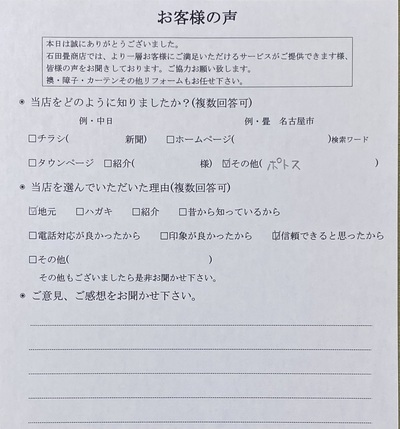 お客様の声
本日は誠にありがとうございました。
石田畳商店では、より一層お客様にご満足いただけるサービスがご提供できます様、
皆様の声をお聞きしております。ご協力お願い致します。
襖・障子・カーテンその他リフォームもお任せ下さい。
◉ 当店をどのように知りましたか?(複数回答可)
例・中日 例・畳 名古屋市
□チラシ( 新聞) □ホームページ( )検索ワード
□タウンページ □紹介( 様) ☑その他( ポトス )
◉ 当店を選んでいただいた理由(複数回答可)
☑地元 □ハガキ □紹介 □昔から知っているから
□電話対応が良かったから □印象が良かったから ☑信頼できると思ったから
□その他( )
その他もございましたら是非お聞かせ下さい。
◉ ご意見、ご感想をお聞かせ下さい。